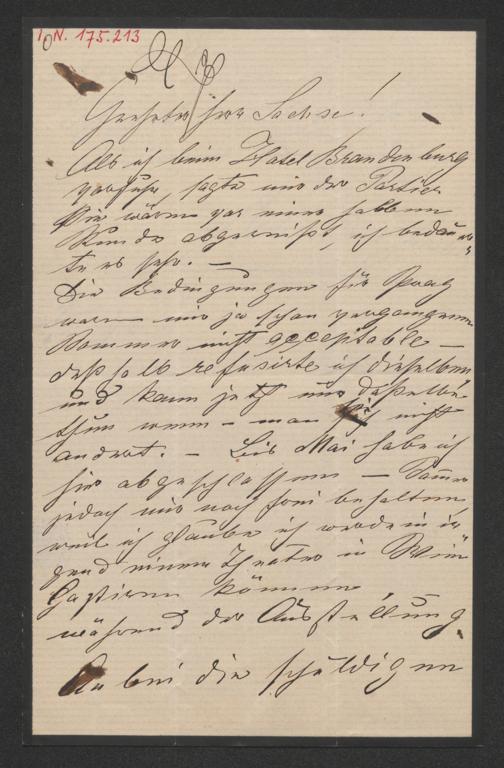 I. N. 175.213
Geehrter Herr Sachse!
Als ich beim Hotel Brandenburg
vorfuhr, sagte mir der Portier
Sie wären vor einer halben
Stunde abgereist ich bedauer-
te es sehr. —
Die Bedingungen für Prag
waren mir ja schon vergangenen
Sommer nicht acceptable —
deßhalb refusirte ich dieselben
und kann jetzt nur dasselbe
thun wenn – man sie nicht
ändert. — Bis Mai habe ich
hier abgeschlossen —
jedoch mir noch frei behalten,
weil ich glaube ich werde in ir
gend einem Theater in Wien
Gastiren können
während der Ausstellung.
Anbei die schuldigen